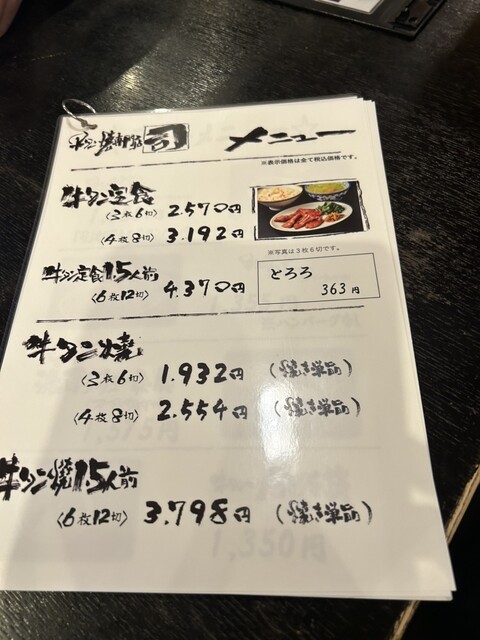 牛タン焼専門店 司 メニュー
※表示価格は全て税込価格です。
牛タン定食
〈3枚6切〉 2.570円
〈4枚8切〉 3.192円
※写真は3枚6切です。
牛タン定食1.5人前
〈6枚12切〉 4.370円
とろろ
363円
牛タン焼
〈3枚6切〉 1.932円 (焼き単品)
〈4枚8切〉 2.554円 (焼き単品)
牛タン焼1.5人前
〈6枚12切〉 3.798円 (焼き単品)
1,350円